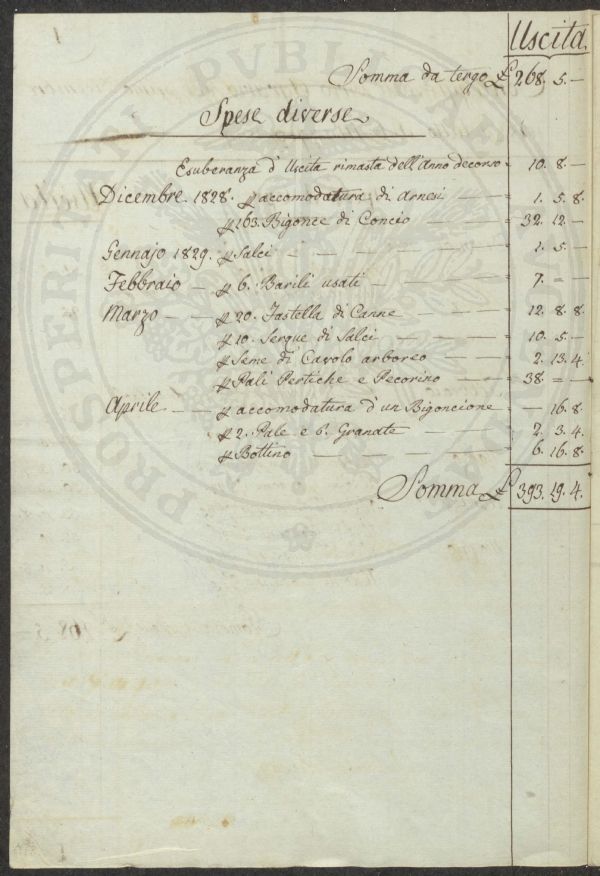 Uscita
Somma da tergo £ 268. 5. —
Spese diverse
Esuberanza d'Uscita rimasta dell'Anno decorso = 10. 8. —
Dicembre. 1828. p accomodatura di arnesi — 1. 5. 8.
p 163. Bigonce di Concio — 32. 12. —
Gennajo 1829. p Salci — — — 1. 5. —
Febbraio — p 6. Barili usati — — 7. = —
Marzo — — p 20. Fastella di Canne — — 12. 8. 8.
p 10. Serque di Salci — — 10. 5. —
p Seme di Cavolo arboreo — — 2. 13. 4.
p Pali Pertiche e Pecorino — — 38. = —
Aprile — — p accomodatura d'un Bigoncione = — 16. 8.
p 2. Pale e 6. Granate — — 2. 3. 4.
p Bottino — — — 6. 16. 8.
Somma £ 393. 19. 4.
PROSPERITATI PVBLICAE AVGENDAE